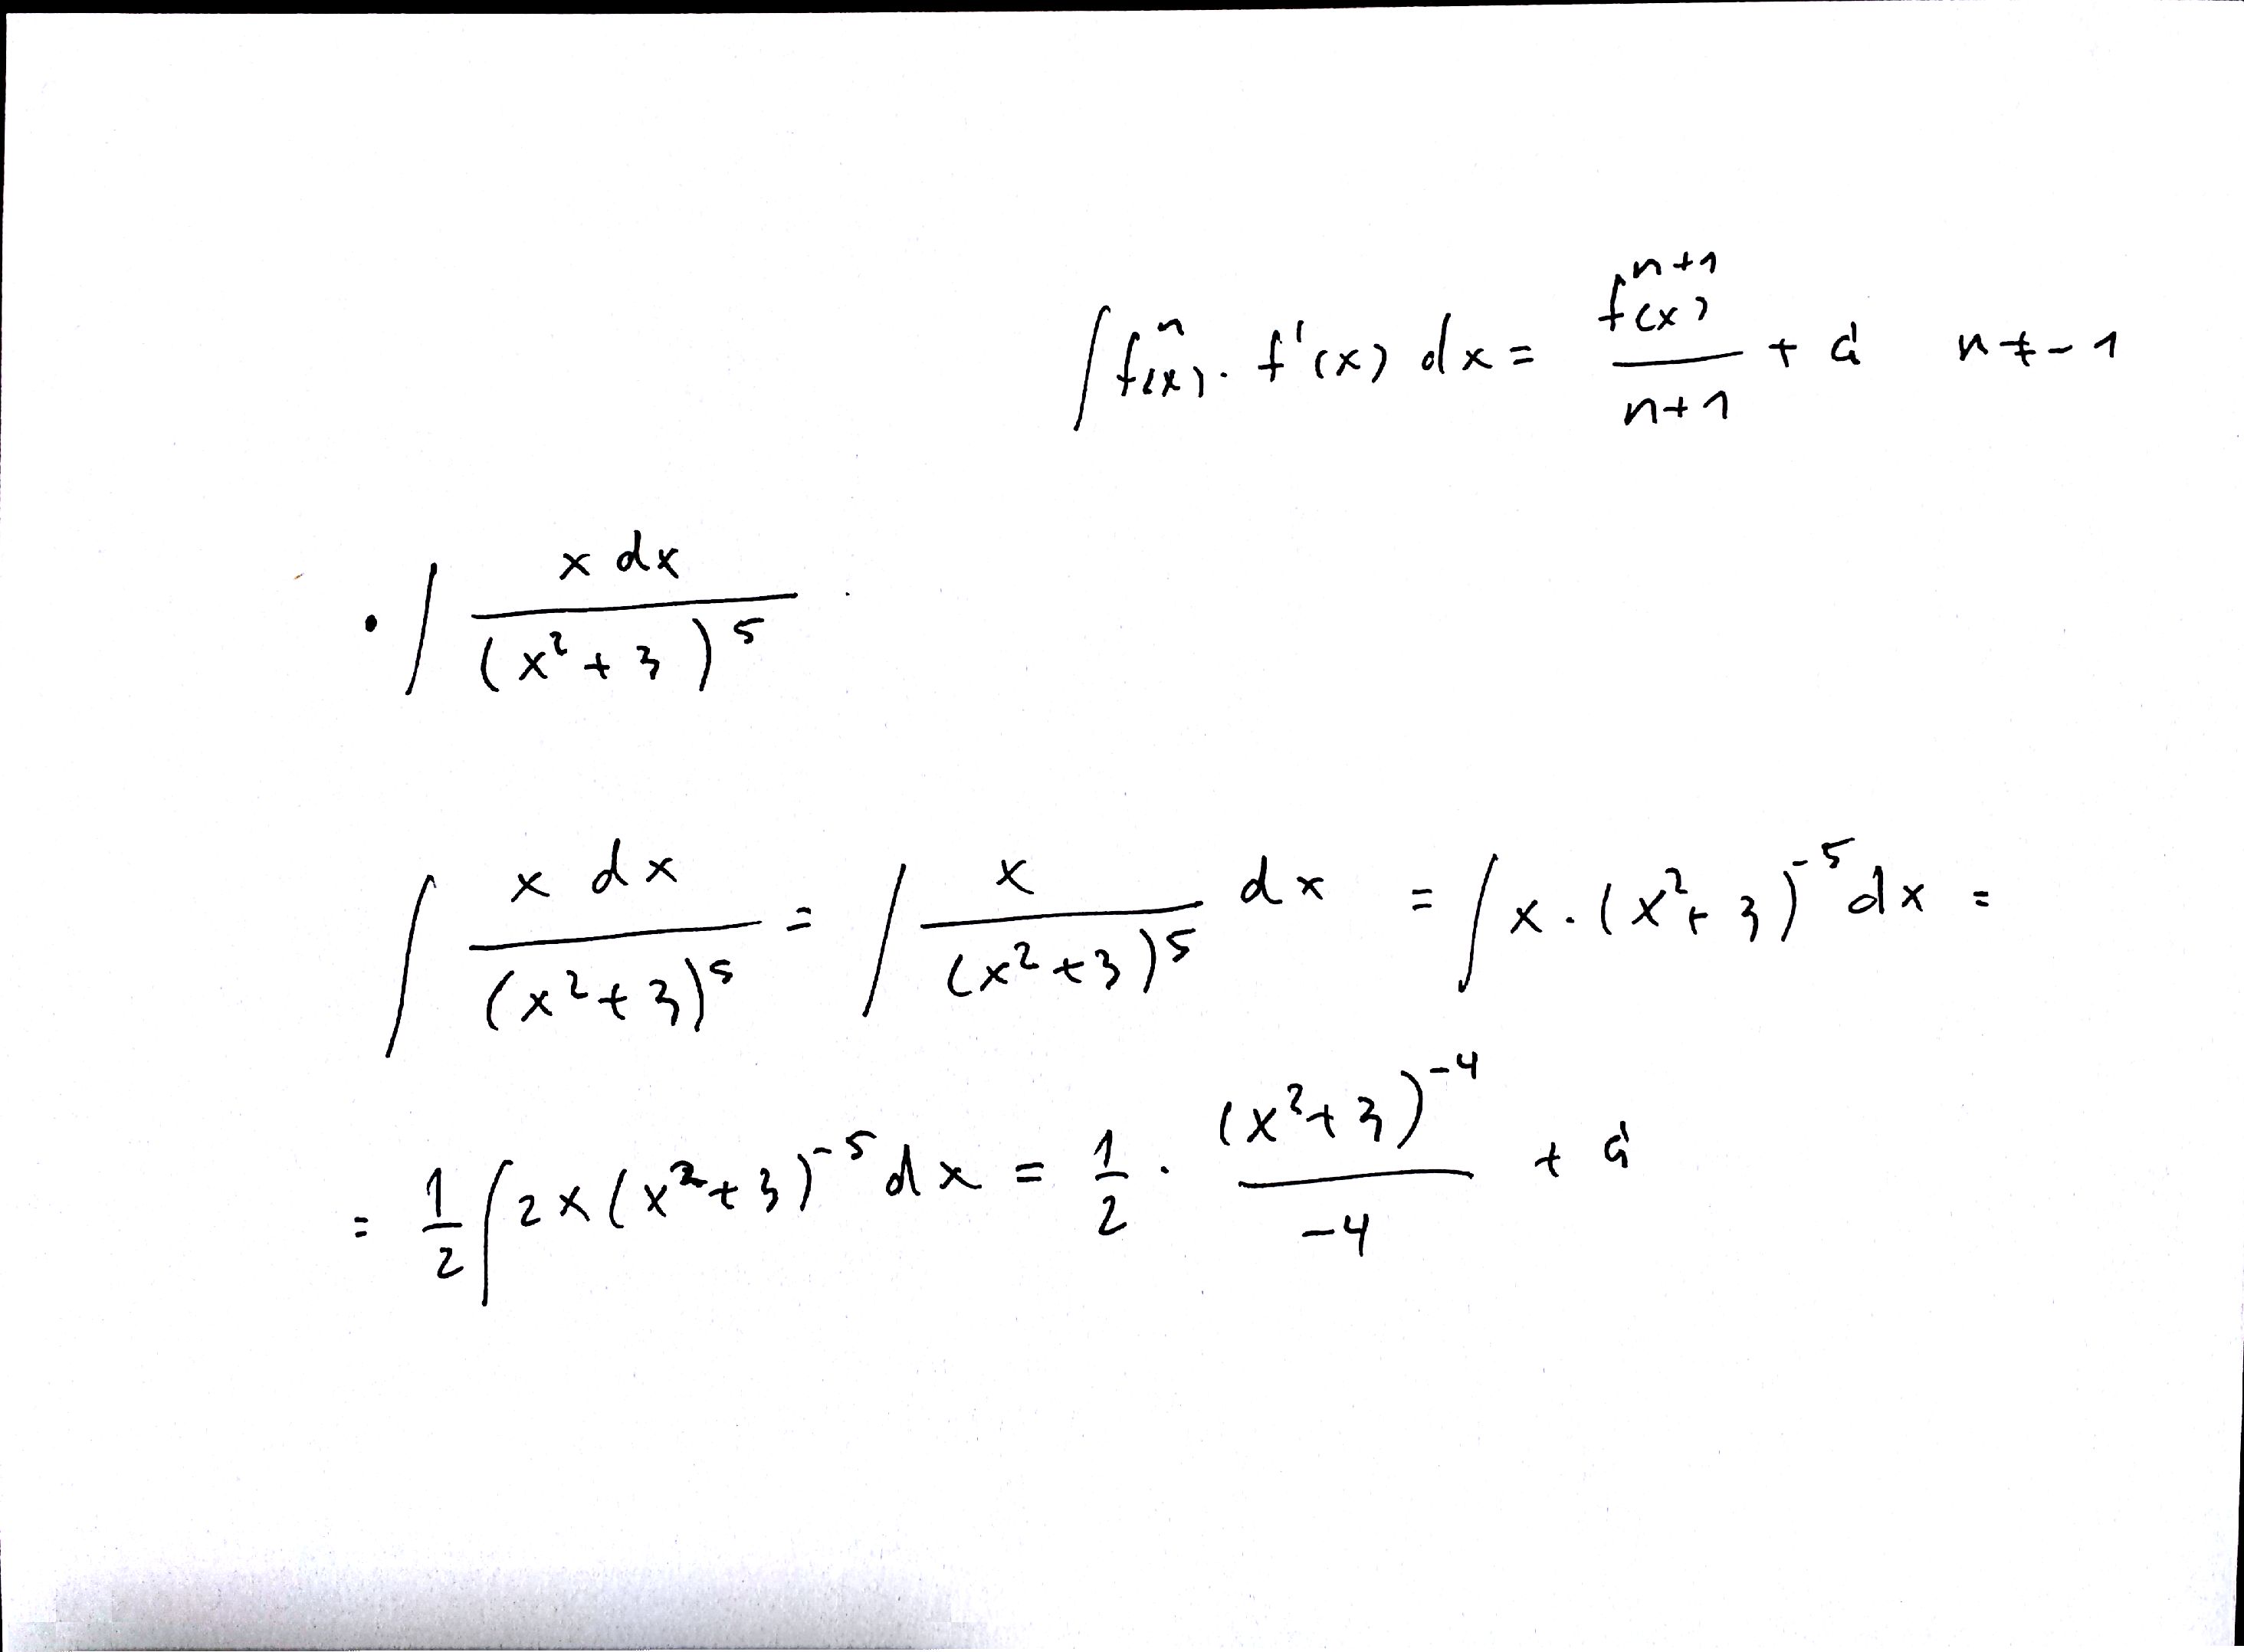 ∫ fⁿ(x) · f'(x) dx = fⁿ⁺¹(x) / (n+1) + C n ≠ -1
• ∫ x dx / (x² + 3)⁵
∫ x dx / (x² + 3)⁵ = ∫ x / (x² + 3)⁵ dx = ∫ x · (x² + 3)⁻⁵ dx =
= 1/2 ∫ 2x (x² + 3)⁻⁵ dx = 1/2 · (x² + 3)⁻⁴ / -4 + C